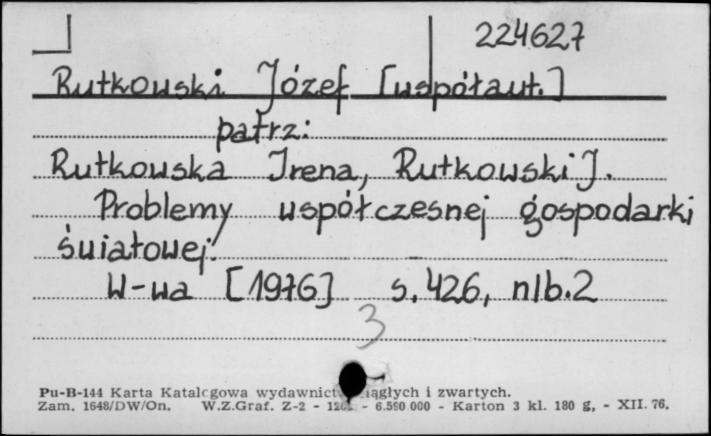 224627
Rutkowski Józef [współaut.]
patrz:
Rutkowska Irena, Rutkowski J.
Problemy współczesnej gospodarki
światowej.
W-wa [1976] s. 426, nlb. 2
3
Pu-B-144 Karta Katalogowa wydawnictw ciągłych i zwartych.
Zam. 1648/DW/On. W.Z.Graf. Z-2 - - 6.590 000 - Karton 3 kl. 180 g, - XII. 76.